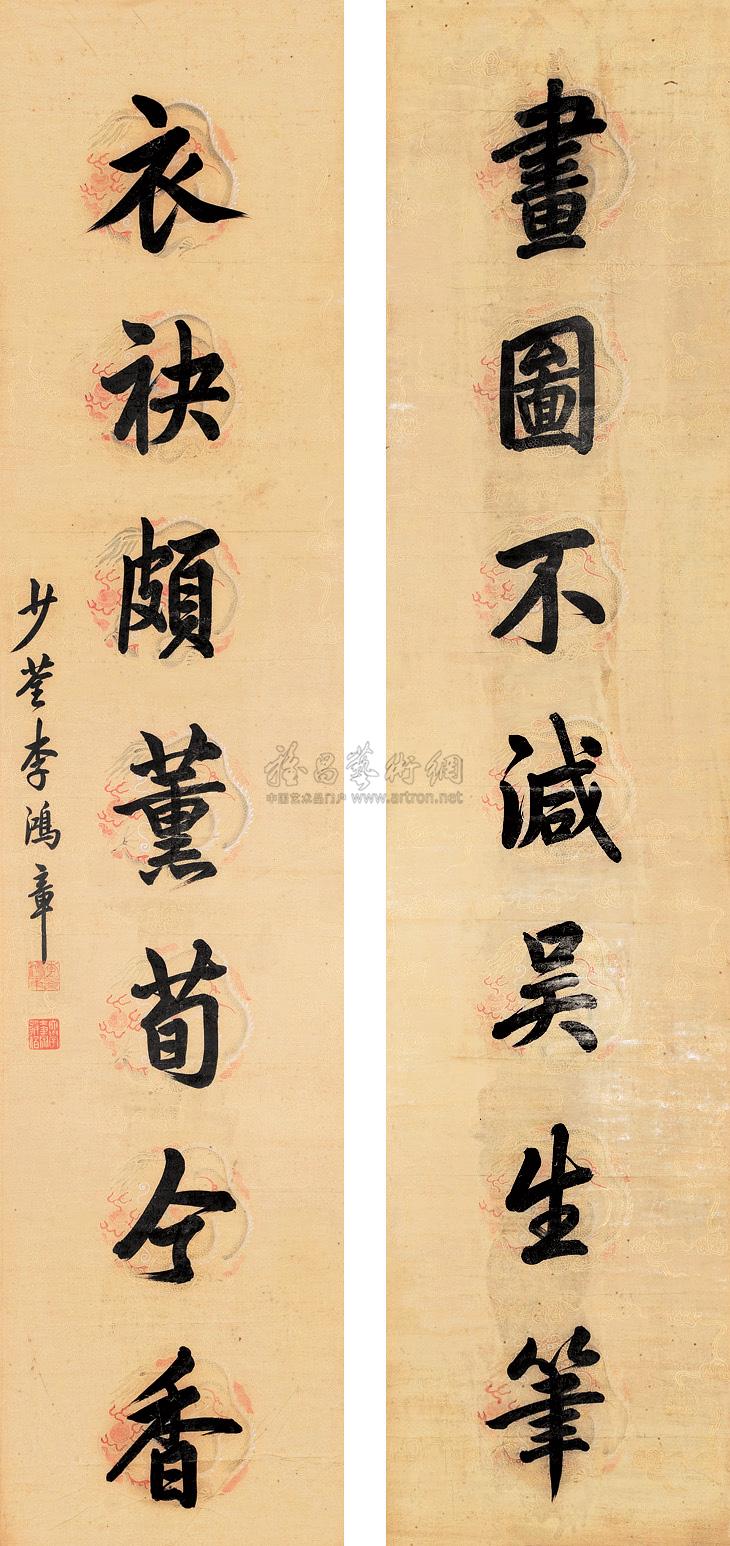 畫圖不減吴生筆
衣袂頗薰荀令香
少荃李鴻章
雅昌藝術網
中国艺术品门户 www.artron.net